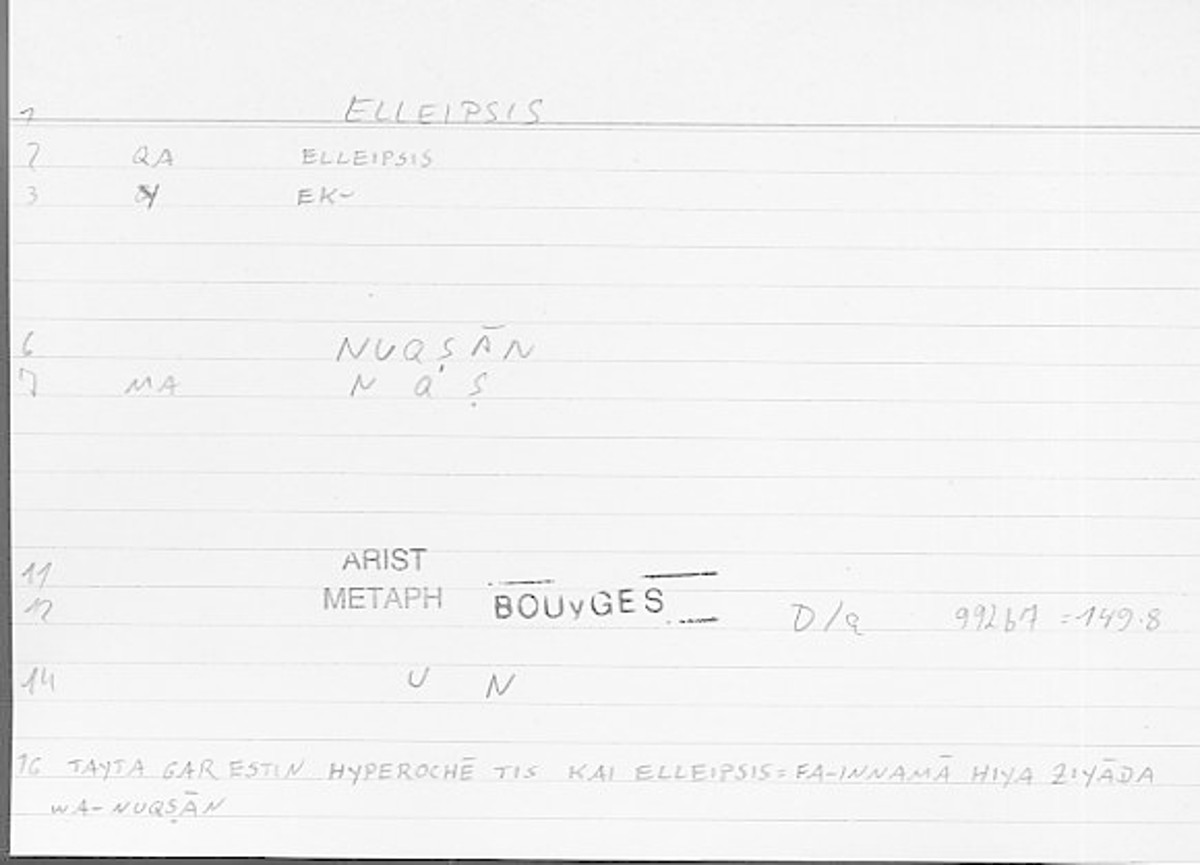 1 ELLEIPSIS
2 QA ELLEIPSIS
3 EK-
6 NUQṢĀN
7 MA N Q Ṣ
11 ARIST
12 METAPH BOUYGES D/q 992b7 =149.8
14 U N
16 TAYTA GAR ESTIN HYPEROCHĒ TIS KAI ELLEIPSIS = FA-INNAMĀ HIYA ZIYĀDA
WA-NUQṢĀN